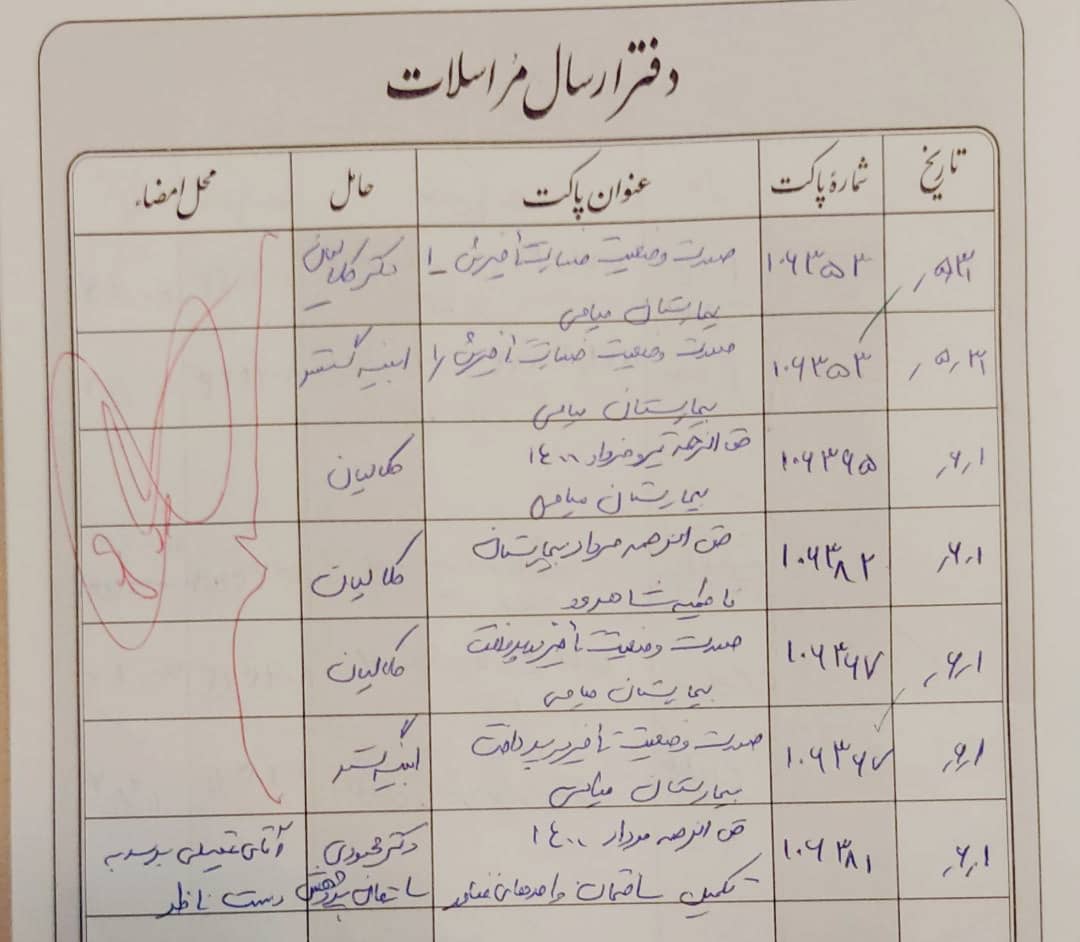 دفتر ارسال مراسلات
تاریخ شمارهٔ پاکت عنوان پاکت حامل محل امضاء
۵٫۳۱ ۱۰۶۳۵۳ صورت وضعیت دکتر کلالیان
بیمارستان میامی
۵٫۳۱ ۱۰۶۳۵۳ صورت وضعیت ابنیه گستر
بیمارستان میامی
۶٫۱ ۱۰۶۳۶۵ حق الزحمه تیر و مرداد ۱۴۰۰ کلالیان
بیمارستان میامی
۶٫۱ ۱۰۶۳۸۲ حق الزحمه مرداد بیمارستان کلالیان
فاطمیه شاهرود
۶٫۱ ۱۰۶۳۶۷ صورت وضعیت تأخیر در پرداخت کلالیان
بیمارستان میامی
۶٫۱ ۱۰۶۳۶۷ صورت وضعیت تأخیر در پرداخت ابنیه گستر
بیمارستان میامی
۶٫۱ ۱۰۶۳۸۱ حق الزحمه مرداد ۱۴۰۰ دکتر محمودی آقای عقیلی برسد به
تکمیل ساختمان واحدهای فناور دست ناظر